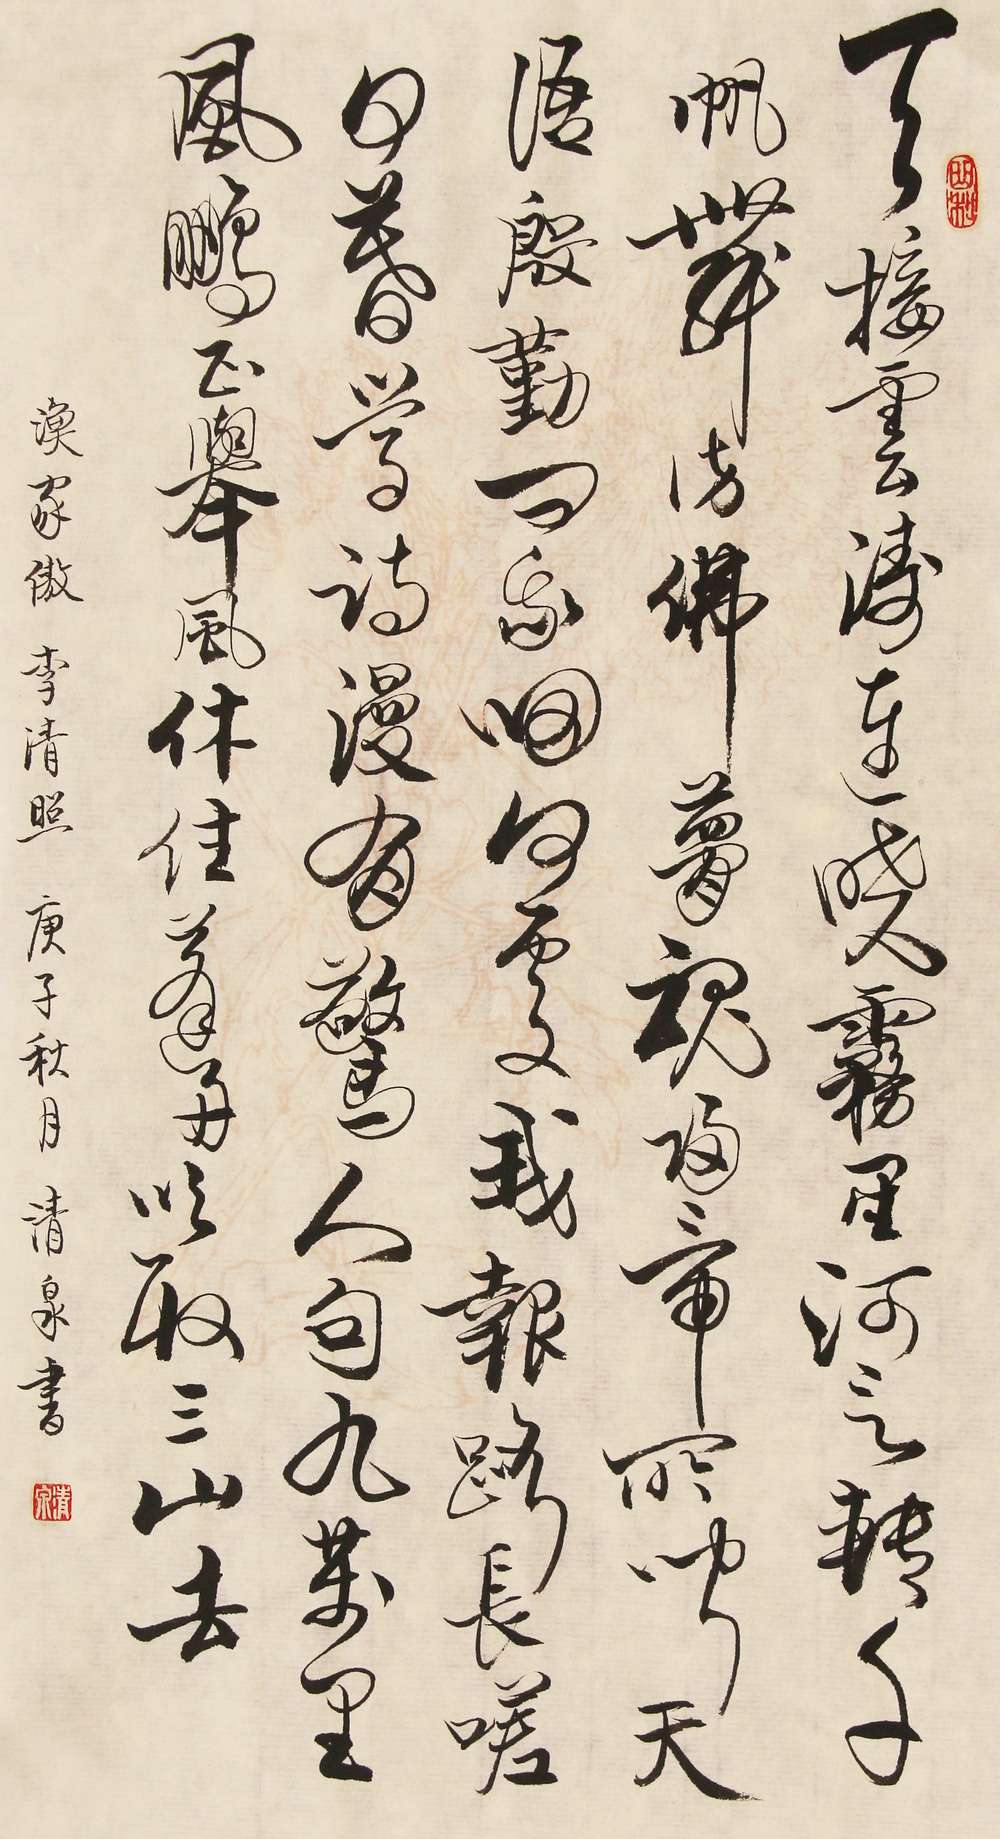 天接雲濤連曉霧星河之轉千
帆舞彷佛夢魂歸帝所聞天
語殷勤問我歸何處我報路長嗟
日暮學詩漫有驚人句九萬里
風鵬正舉風休住蓬舟吹取三山去
漁家傲 李清照 庚子秋月 清泉書
清泉